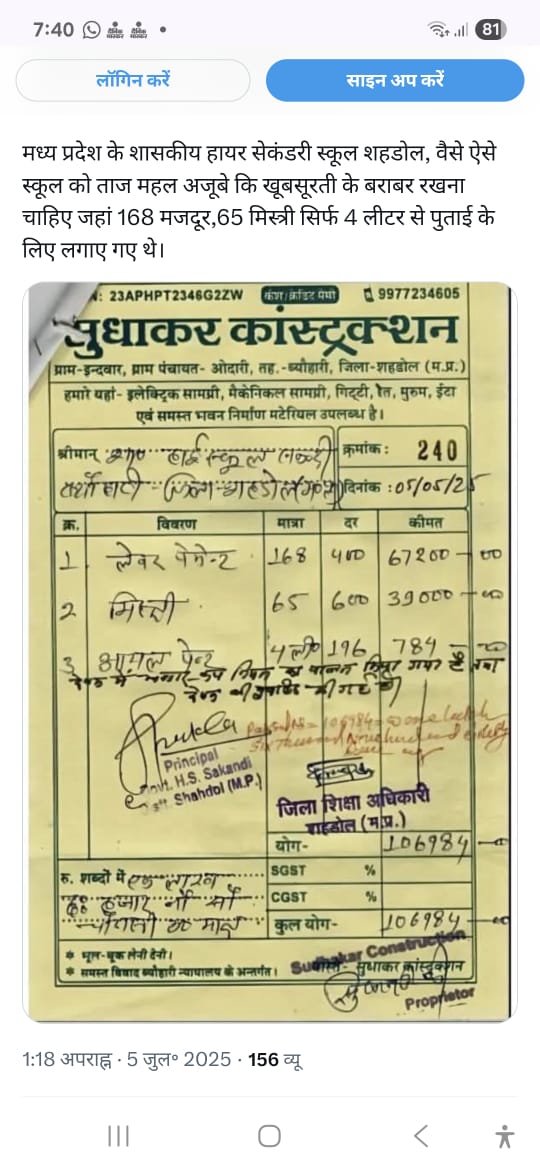 7:40
81
लॉगिन करें
साइन अप करें
मध्य प्रदेश के शासकीय हायर सेकंडरी स्कूल शहडोल, वैसे ऐसे
स्कूल को ताज महल अजूबे कि खूबसूरती के बराबर रखना
चाहिए जहां 168 मजदूर,65 मिस्त्री सिर्फ 4 लीटर से पुताई के
लिए लगाए गए थे।
: 23APHPT2346G2ZW कैश/क्रेडिट मेमो 9977234605
सुधाकर कांस्ट्रक्शन
ग्राम-इन्दवार, ग्राम पंचायत- ओदारी, तह.-ब्यौहारी, जिला-शहडोल (म.प्र.)
हमारे यहां- इलेक्ट्रिक सामग्री, मैकेनिकल सामग्री, गिट्टी, रेत, मुरुम, ईंटा
एवं समस्त भवन निर्माण मटेरियल उपलब्ध है।
श्रीमान् हाई स्कूल क्रमांक: 240
जिला-शहडोल (म०प्र०) दिनांक :05/05/25
क्र. विवरण मात्रा दर कीमत
1. लेबर पेमेन्ट 168 400 67200-00
2 मिस्त्री 65 600 39000-00
3 आयल पेन्ट 4 ली० 196 784
का पालन किया गया है तथा
की गई है।
Principal
Govt. H.S. Sakandi
Distt. Shahdol (M.P.)
Passed Rs = 106984=00 one lackh
Six thousand
जिला शिक्षा अधिकारी
शहडोल (म.प्र.)
योग- 106984
SGST %
CGST %
रु. शब्दों में एक लाख
छः हजार नौ सौ
चौरासी रु० मात्र
कुल योग- 106984-00
* भूल-चूक लेनी देनी।
* समस्त विवाद ब्यौहारी न्यायालय के अन्तर्गत।
Sudhakar Construction
वास्ते- सुधाकर कांस्ट्रक्शन
Proprietor
1:18 अपराह्न · 5 जुल॰ 2025 · 156 व्यू